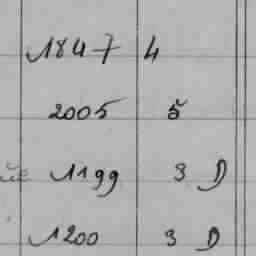 1847 4
2005 5
1199 3 D
1200 3 D